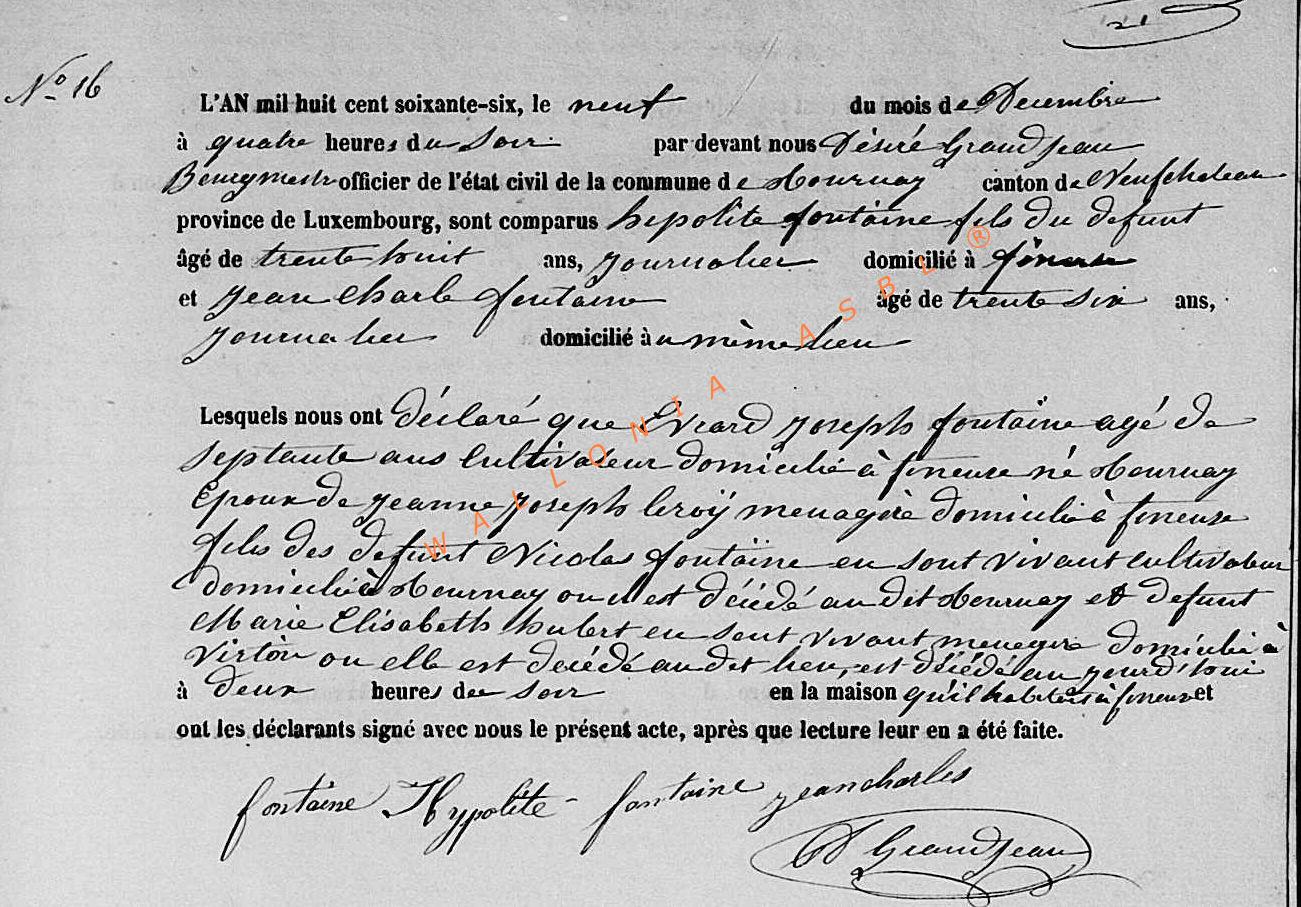 21
No 16
L'AN mil huit cent soixante-six, le neuf du mois de Décembre
à quatre heures du soir par devant nous Désiré Grandjean
Bourgmestre officier de l'état civil de la commune de Tournay canton de Neufchateau
province de Luxembourg, sont comparus hipolite fontaine fils du defunt
âgé de trente huit ans, journalier domicilié à fineuse
et jean Charle fontaine âgé de trente six ans,
journalier domicilié au même lieu
Lesquels nous ont déclaré que Evrard joseph fontaine agé de
septante ans cultivateur domicilié à fineuse né Tournay
Epoux de jeanne joseph leroÿ menagère domicilié à fineuse
fils des defunt Nicolas fontaine en sont vivant cultivateur
domicilié à Tournay ou il est décédé au dit Tournay et defunt
Marie Elisabeth hubert en sont vivant menagere domicilié à
virton ou elle est décédé au dit lieu, est décédé au jourd'houi
à deux heures du soir en la maison qu'il habitait à fineuse et
ont les déclarants signé avec nous le présent acte, après que lecture leur en a été faite.
fontaine Hypolite fontaine jeancharles
D Grandjean
WALLONIA ASBL ®